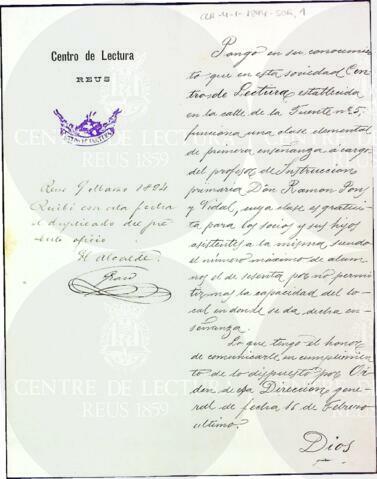 CLR-4-1-1894-SOR,1
Centro de Lectura
REUS
Reus 9 Marzo 1894
Recibí con esta fecha
el duplicado del pre
sente oficio
El Alcalde
Pongo en su conocimien
to que en esta sociedad Cen
tro de Lectura establecida
en la calle de la Fuente nº 5,
funciona una clase elemental
de primera enseñanza á cargo
del profesor de Instruccion
primaria Don Ramon Pons
y Vidal, cuya clase es gratui
ta para los socios y sus hijos
asistentes á la misma, siendo
el número máximo de alum
nos el de sesenta por no permi
tir mas la capacidad del lo
cal en donde se da dicha en
señanza.
Lo que tengo el honor
de comunicarle en cumplimien
to de lo dispuesto por Or
den de esa Direccion gene
ral de fecha 16 de Febrero
ultimo.
Dios
CENTRE DE LECTURA
REUS 1859
CENTRE DE LECTURA
REUS 1859